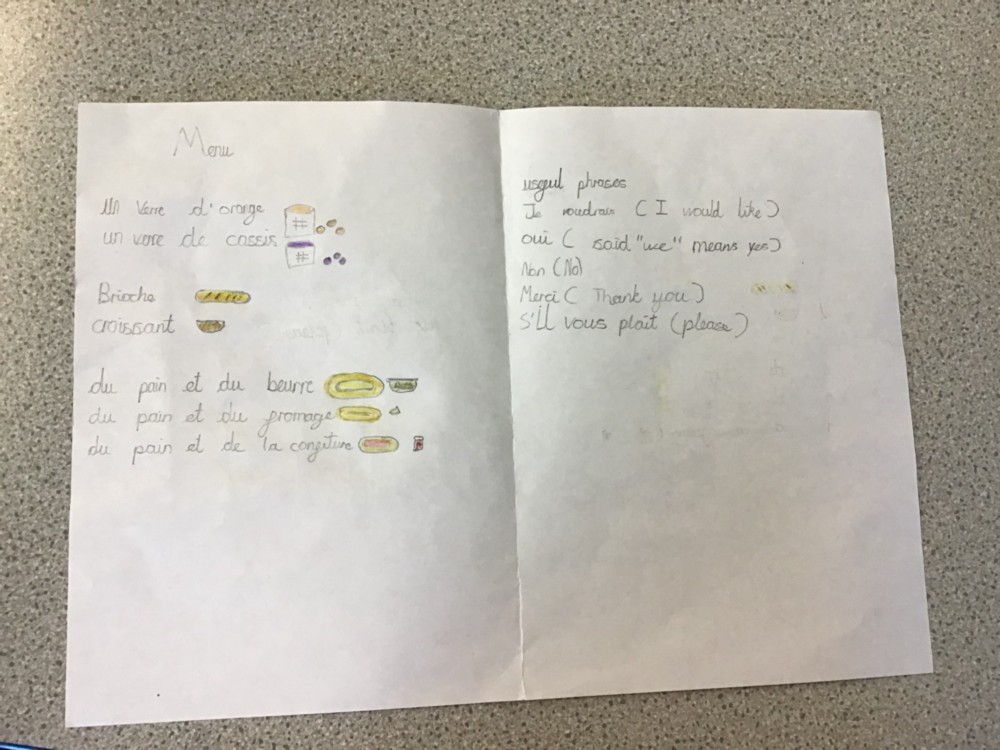 Menu
un verre d'orange
un verre de cassis
Brioche
croissant
du pain et du beurre
du pain et du fromage
du pain et de la confiture
useful phrases
Je voudrais (I would like)
oui (said "we" means yes)
Non (No)
Merci (Thank you)
S'iLL vous plaît (please)